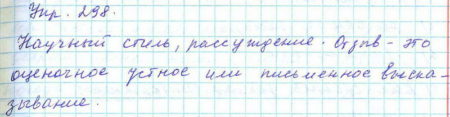 Упр. 298.
Научный стиль, рассуждение. Отзыв - это
оценочное устное или письменное выска-
зывание.